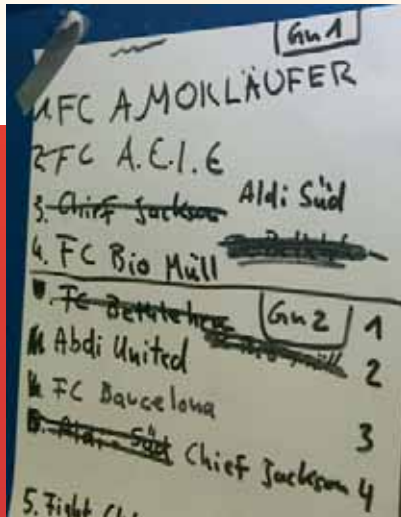 Gr 1
1. FC AMOKLÄUFER
2 FC A.C.I.E
3. Chief Jackson Aldi Süd
4. FC Bio Müll
FC Bethlehem Gr 2 1
Abdi United 2
FC Barcelona 3
Aldi Süd Chief Jackson 4
5. Fight